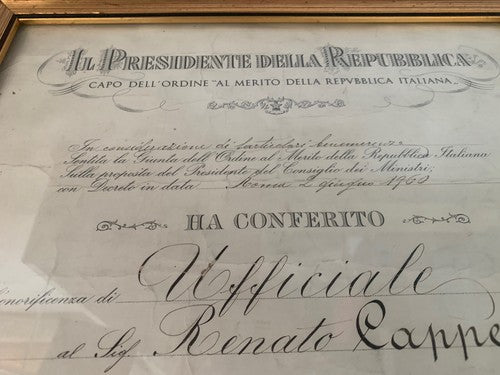 IL PRESIDENTE DELLA REPUBBLICA
CAPO DELL'ORDINE "AL MERITO DELLA REPVBBLICA ITALIANA"
In considerazione di particolari benemerenze
Sentita la Giunta dell'Ordine al Merito della Repubblica Italiana
Sulla proposta del Presidente del Consiglio dei Ministri;
con Decreto in data Roma 2 giugno
HA CONFERITO
onorificenza di Ufficiale
al Sig. Renato Cappe